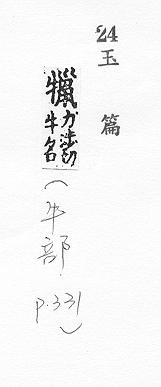 24
玉篇
犣力涉切牛名
(牛部
p.331)